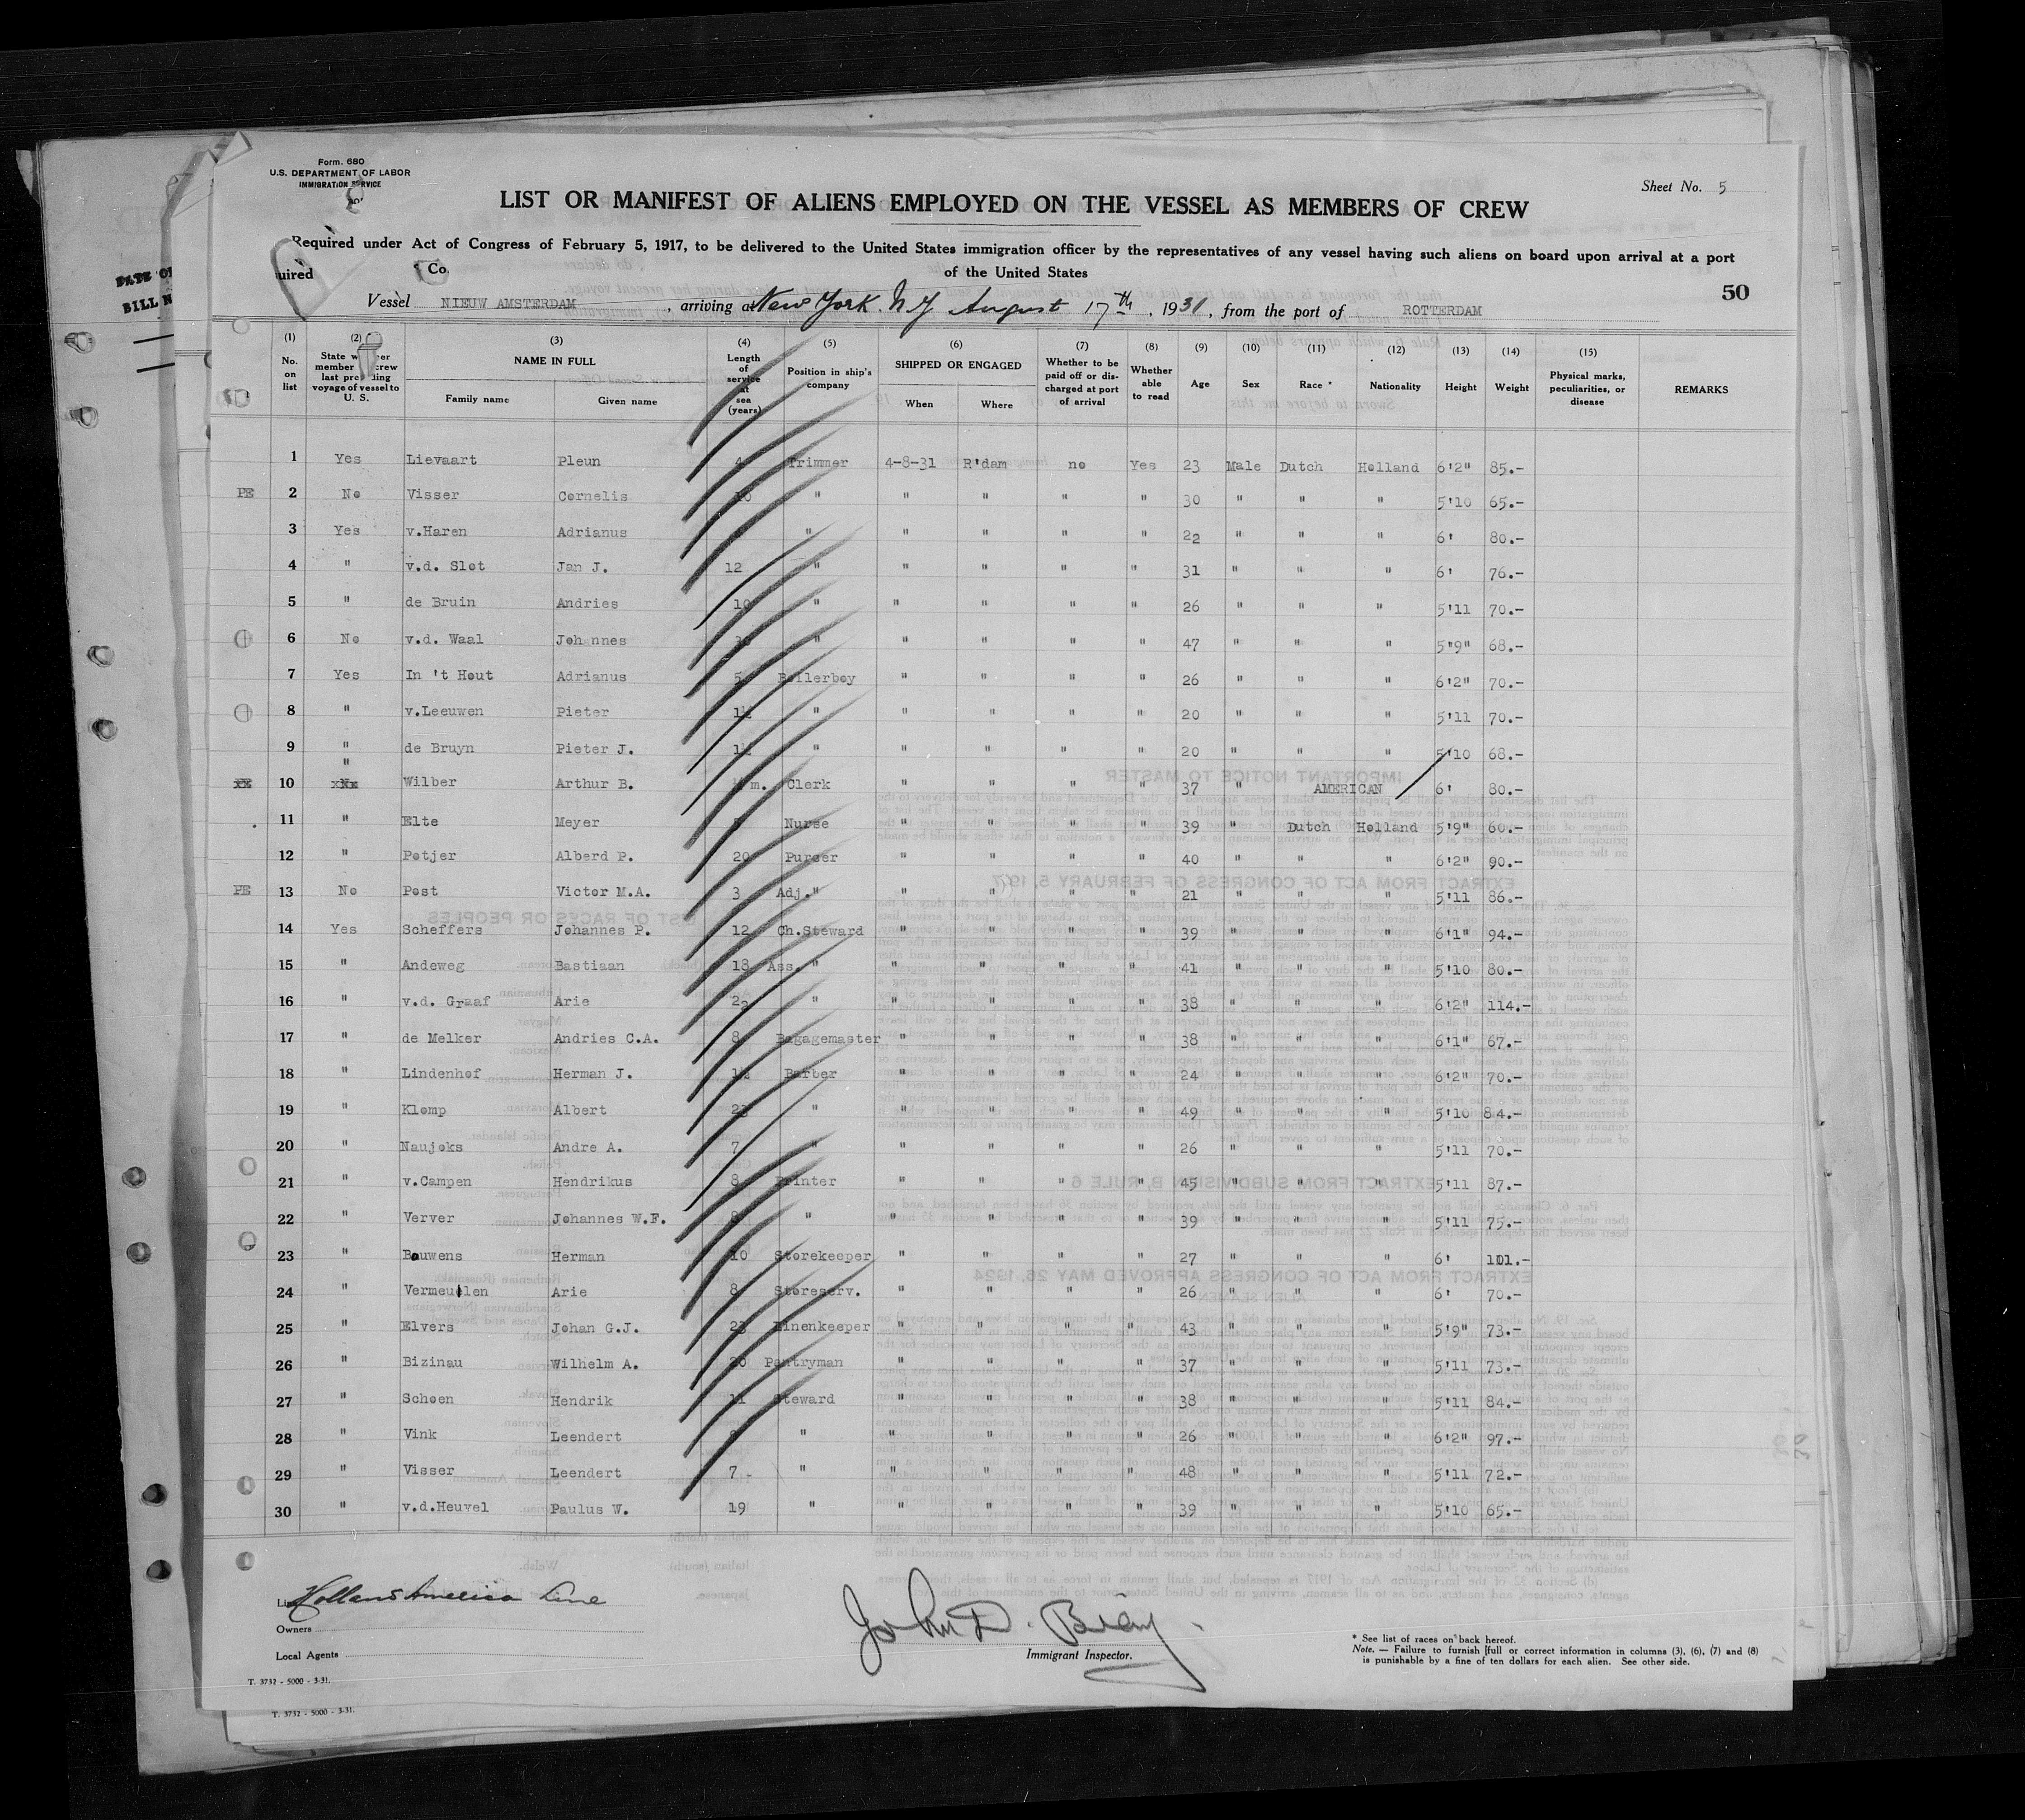 Form. 680
U.S. DEPARTMENT OF LABOR
IMMIGRATION SERVICE
Sheet No. 5
LIST OR MANIFEST OF ALIENS EMPLOYED ON THE VESSEL AS MEMBERS OF CREW
Required under Act of Congress of February 5, 1917, to be delivered to the United States immigration officer by the representatives of any vessel having such aliens on board upon arrival at a port
of the United States
50
Vessel NIEUW AMSTERDAM, arriving at New York. N.Y August 17th, 1931, from the port of ROTTERDAM
(1) (2) (3) (4) (5) (6) (7) (8) (9) (10) (11) (12) (13) (14) (15)
No. on list
NAME IN FULL
Family name Given name
Length of service at sea (years)
Position in ship's company
SHIPPED OR ENGAGED
When Where
Whether to be paid off or discharged at port of arrival
Whether able to read
Age Sex Race * Nationality Height Weight
Physical marks, peculiarities, or disease
REMARKS
1 Yes Lievaart Pleun 4 Trimmer 4-8-31 R'dam no Yes 23 Male Dutch Holland 6'2" 85.-
PE 2 No Visser Cornelis " " " " " 30 " " " 5'10 65.-
3 Yes v.Haren Adrianus " " " " " 22 " " " 6' 80.-
4 " v.d. Slot Jan J. 12 " " " " " 31 " " " 6' 76.-
5 " de Bruin Andries 10 " " " " " 26 " " " 5'11 70.-
6 No v.d. Waal Johannes " " " " " 47 " " " 5'9" 68.-
7 Yes In 't Hout Adrianus 5 Bellerboy " " " " 26 " " " 6'2" 70.-
8 " v.Leeuwen Pieter 1½ " " " " " 20 " " " 5'11 70.-
9 " de Bruyn Pieter J. 1½ " " " " " 20 " " " 5'10 68.-
10 " Wilber Arthur B. m. Clerk " " " " 37 " AMERICAN 6' 80.-
11 " Elte Meyer Nurse " " " " 39 " Dutch Holland 5'9" 60.-
12 " Potjer Alberd P. 20 Purser " " " " 40 " " " 6'2" 90.-
PE 13 No Post Victor M.A. 3 Adj. " " " " " 21 " " " 5'11 86.-
14 Yes Scheffers Johannes P. 12 Ch.Steward " " " " 39 " " " 6'1" 94.-
15 " Andeweg Bastiaan 18 Ass. " " " " " 41 " " " 5'10 80.-
16 " v.d. Graaf Arie 22 " " " " " 38 " " " 6'2" 114.-
17 " de Melker Andries C.A. 8 Bagagemaster " " " " 38 " " " 6'1" 67.-
18 " Lindenhof Herman J. 1½ Barber " " " " 24 " " " 6'2" 70.-
19 " Klomp Albert 23 " " " " " 49 " " " 5'10 84.-
20 " Naujoks Andre A. 7 " " " " " 26 " " " 5'11 70.-
21 " v.Campen Hendrikus 8 Printer " " " " 45 " " " 5'11 87.-
22 " Verver Johannes W.F. 8 " " " " " 39 " " " 5'11 75.-
23 " Bouwens Herman 10 Storekeeper " " " " 27 " " " 6' 101.-
24 " Vermeulen Arie 8 Storeserv. " " " " 26 " " " 6' 70.-
25 " Elvers Johan G.J. 23 Linenkeeper " " " " 43 " " " 5'9" 73.-
26 " Bizinau Wilhelm A. 20 Pantryman " " " " 37 " " " 5'11 73.-
27 " Schoen Hendrik 11 Steward " " " " 38 " " " 5'11 84.-
28 " Vink Leendert " " " " " 26 " " " 6'2" 97.-
29 " Visser Leendert 7 " " " " " 48 " " " 5'11 72.-
30 " v.d.Heuvel Paulus W. 19 " " " " " 39 " " " 5'10 65.-
Holland America Line
Owners
Local Agents
Immigrant Inspector.
* See list of races on back hereof.
Note. — Failure to furnish full or correct information in columns (3), (6), (7) and (8)
is punishable by a fine of ten dollars for each alien. See other side.
T. 3732 - 5000 - 3-31.
T. 3732 - 5000 - 3-31.